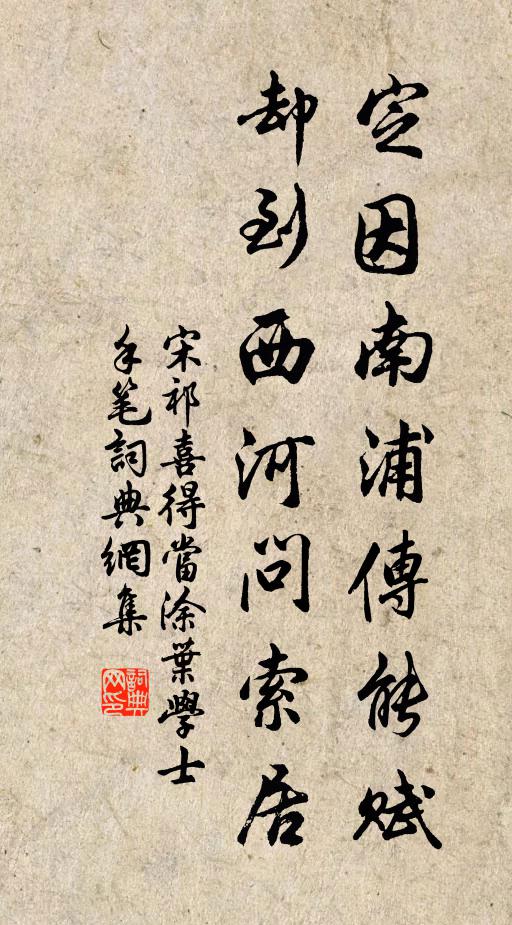 定因南浦傳能賦
却到西河問索居
宋祁喜得當涂葉學士
手笔詞典網集
詞典网印